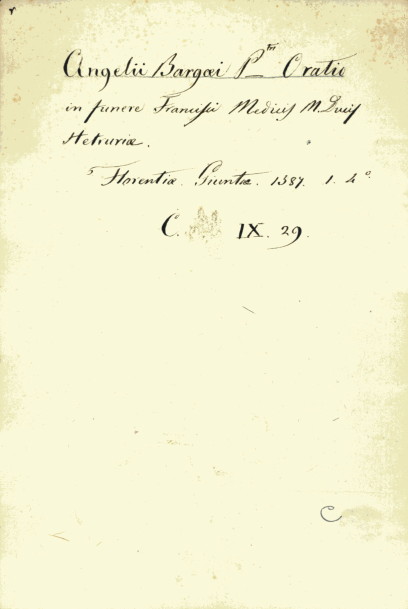 Angelii Bargæi P tri Oratio
in funere Francisci Medicis M. Ducis
Hetruriæ.
Florentiæ. Giuntæ. 1587. 1. 4º.
C. IX. 29.
C